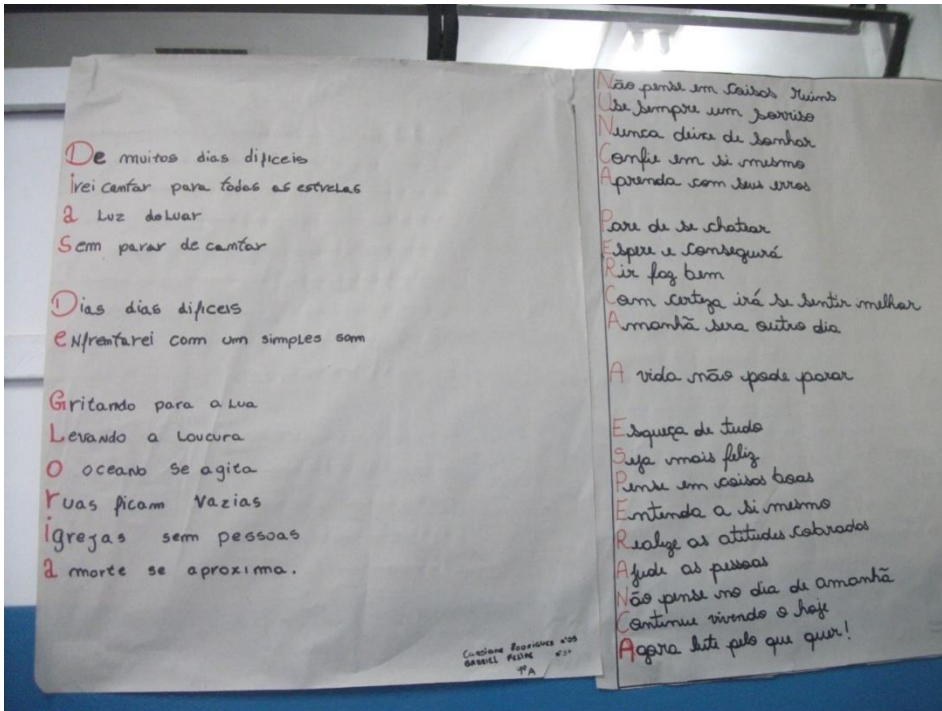 De muitos dias dificeis
irei cantar para todas as estrelas
a Luz do Luar
Sem parar de cantar
Dias dias dificeis
enfrentarei com um simples som
Gritando para a Lua
Levando a Loucura
o oceano se agita
ruas ficam vazias
igrejas sem pessoas
a morte se aproxima.
Rodrigues nº05
GABRIEL FELIPE
1ºA
Não pense em coisas ruins
Use sempre um sorriso
Nunca deixe de sonhar
Confie em si mesmo
Aprenda com seus erros
Pare de se chatear
Espere e conseguirá
Rir faz bem
Com certeza irá se sentir melhor
Amanhã sera outro dia
A vida não pode parar
Esqueça de tudo
Seja mais feliz
Pense em coisas boas
Entenda a si mesmo
Realize as atitudes cobradas
Ajude as pessoas
Não pense no dia de amanhã
Continue vivendo o hoje
Agora lute pelo que quer!